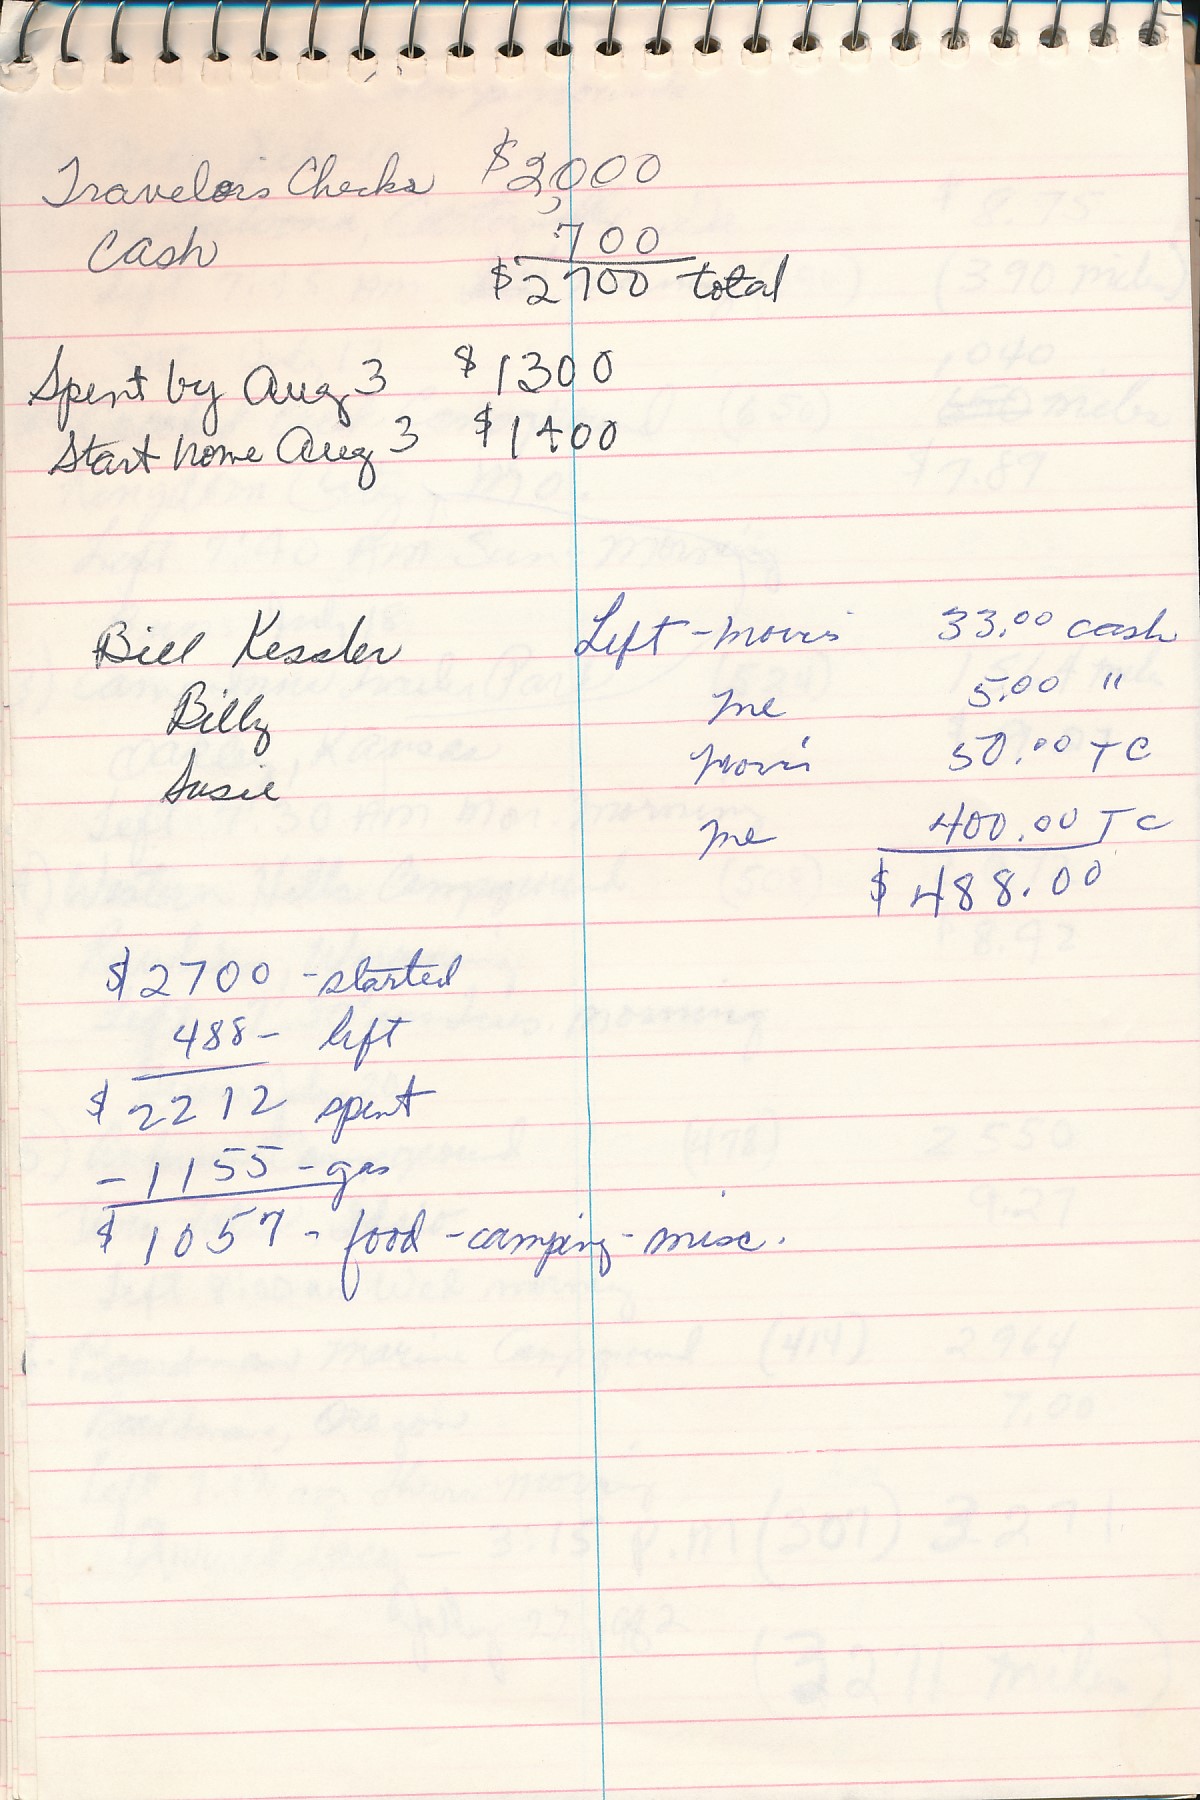 Travelors Checks $2,000
Cash 700
$2700 total
Spent by Aug 3 $1300
Start home Aug 3 $1400
Bill Kessler
Billy
Susie
Left - mom's 33.00 cash
me 5.00 "
mom's 50.00 TC
me 400.00 TC
$488.00
$2700 - started
488 - left
$2212 spent
- 1155 - gas
$1057 - food - camping - misc.